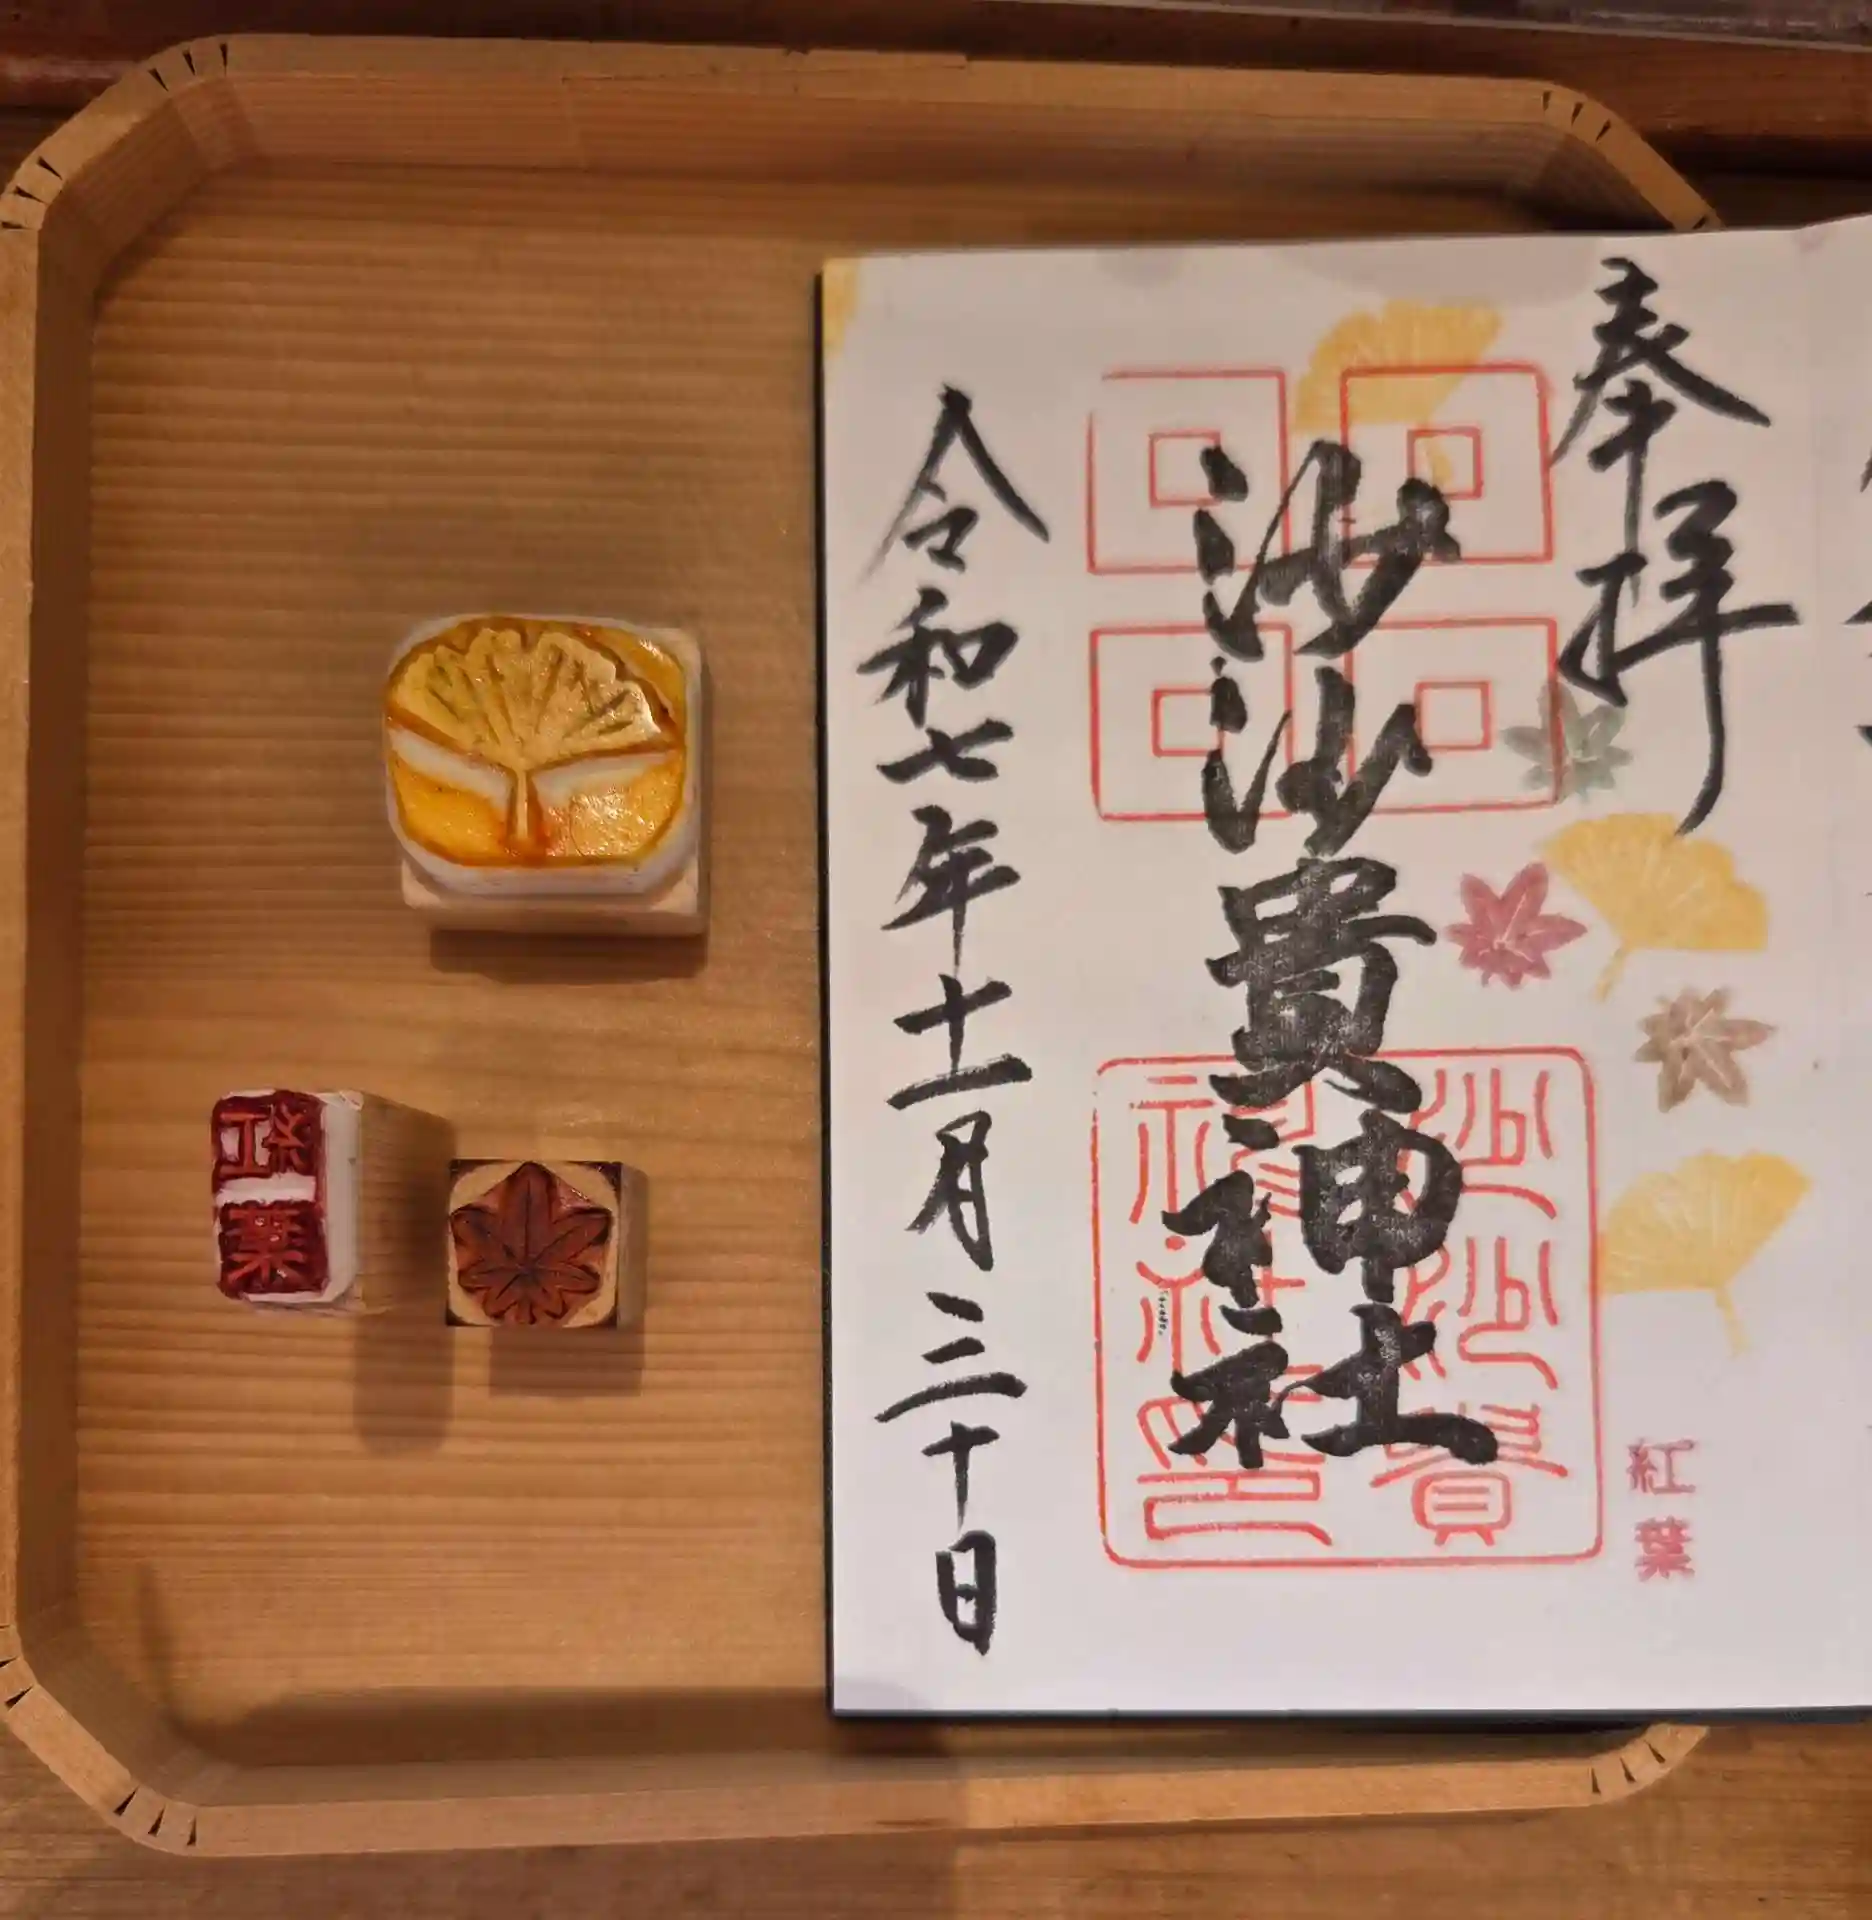 奉拝
紅葉
沙沙貴神社
沙沙貴
神社印
令和七年十一月三十日
紅葉